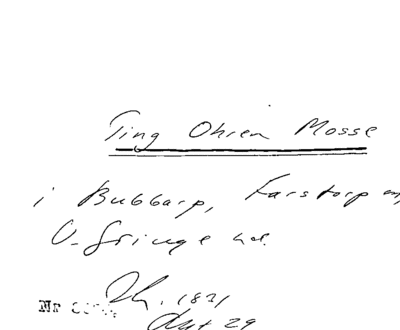 Ting Ohren Mosse
i Bubbarp, Farstorp
V. Göinge hd.
Dh. 1831
Akt 29
Nr